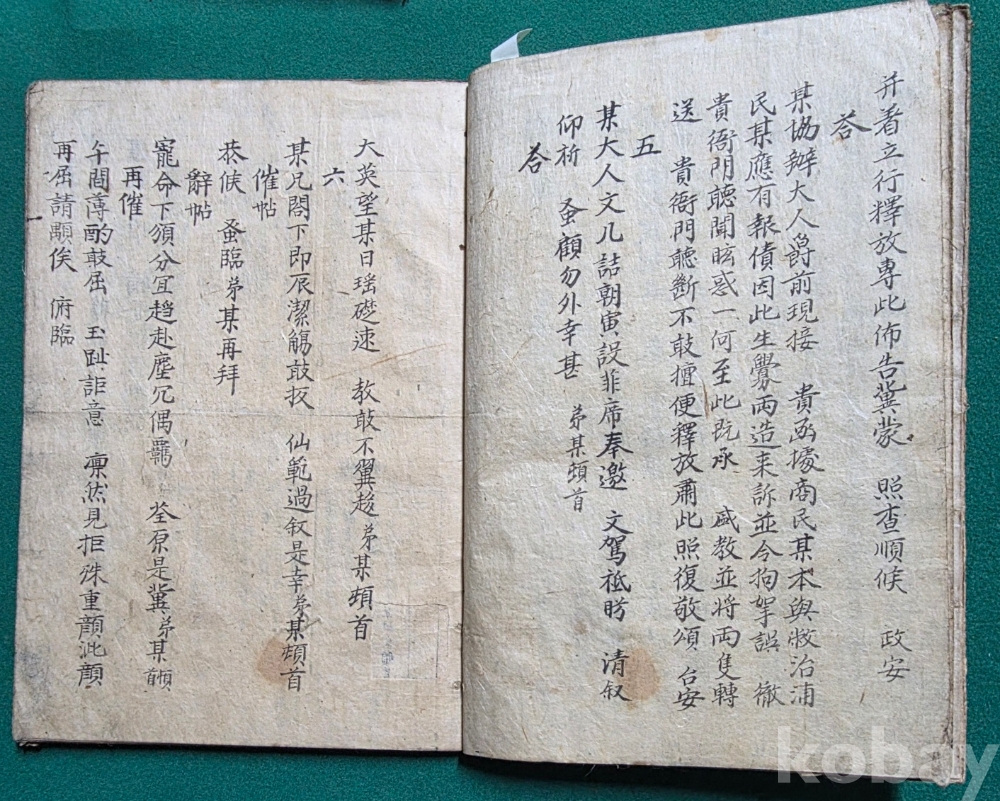 并着立行釋放專此佈告冀蒙 照查順候 政安
答
某協辦大人爵前現接 貴函據商民某本與敝治浦
民某應有報債因此生釁兩造来訴並令拘拏誤 徹
貴衙門聽聞眩惑一何至此旣承 盛教並將兩隻轉
送 貴衙門聽斷不敢擅便釋放肅此照復敬頌 台安
五
某大人文几詰朝寅設菲席奉邀 文駕祗盼 清叙
仰祈 蚤顧勿外幸甚 弟某頓首
答
大英望某日瑶礎速 教敢不翼趍弟某頓首
六
某凡閤下即辰潔觴敢扳 仙範過叙是幸弟某頓首
催帖
恭候 蚤臨弟某再拜
辭帖
寵命下頒分宜趍赴塵冗偶羈 荃原是冀弟某頓首
再催
午間薄酌敢屈 玉趾詎意 凛然見拒殊重顔泚顔
再屈請顯俟 俯臨
kobay